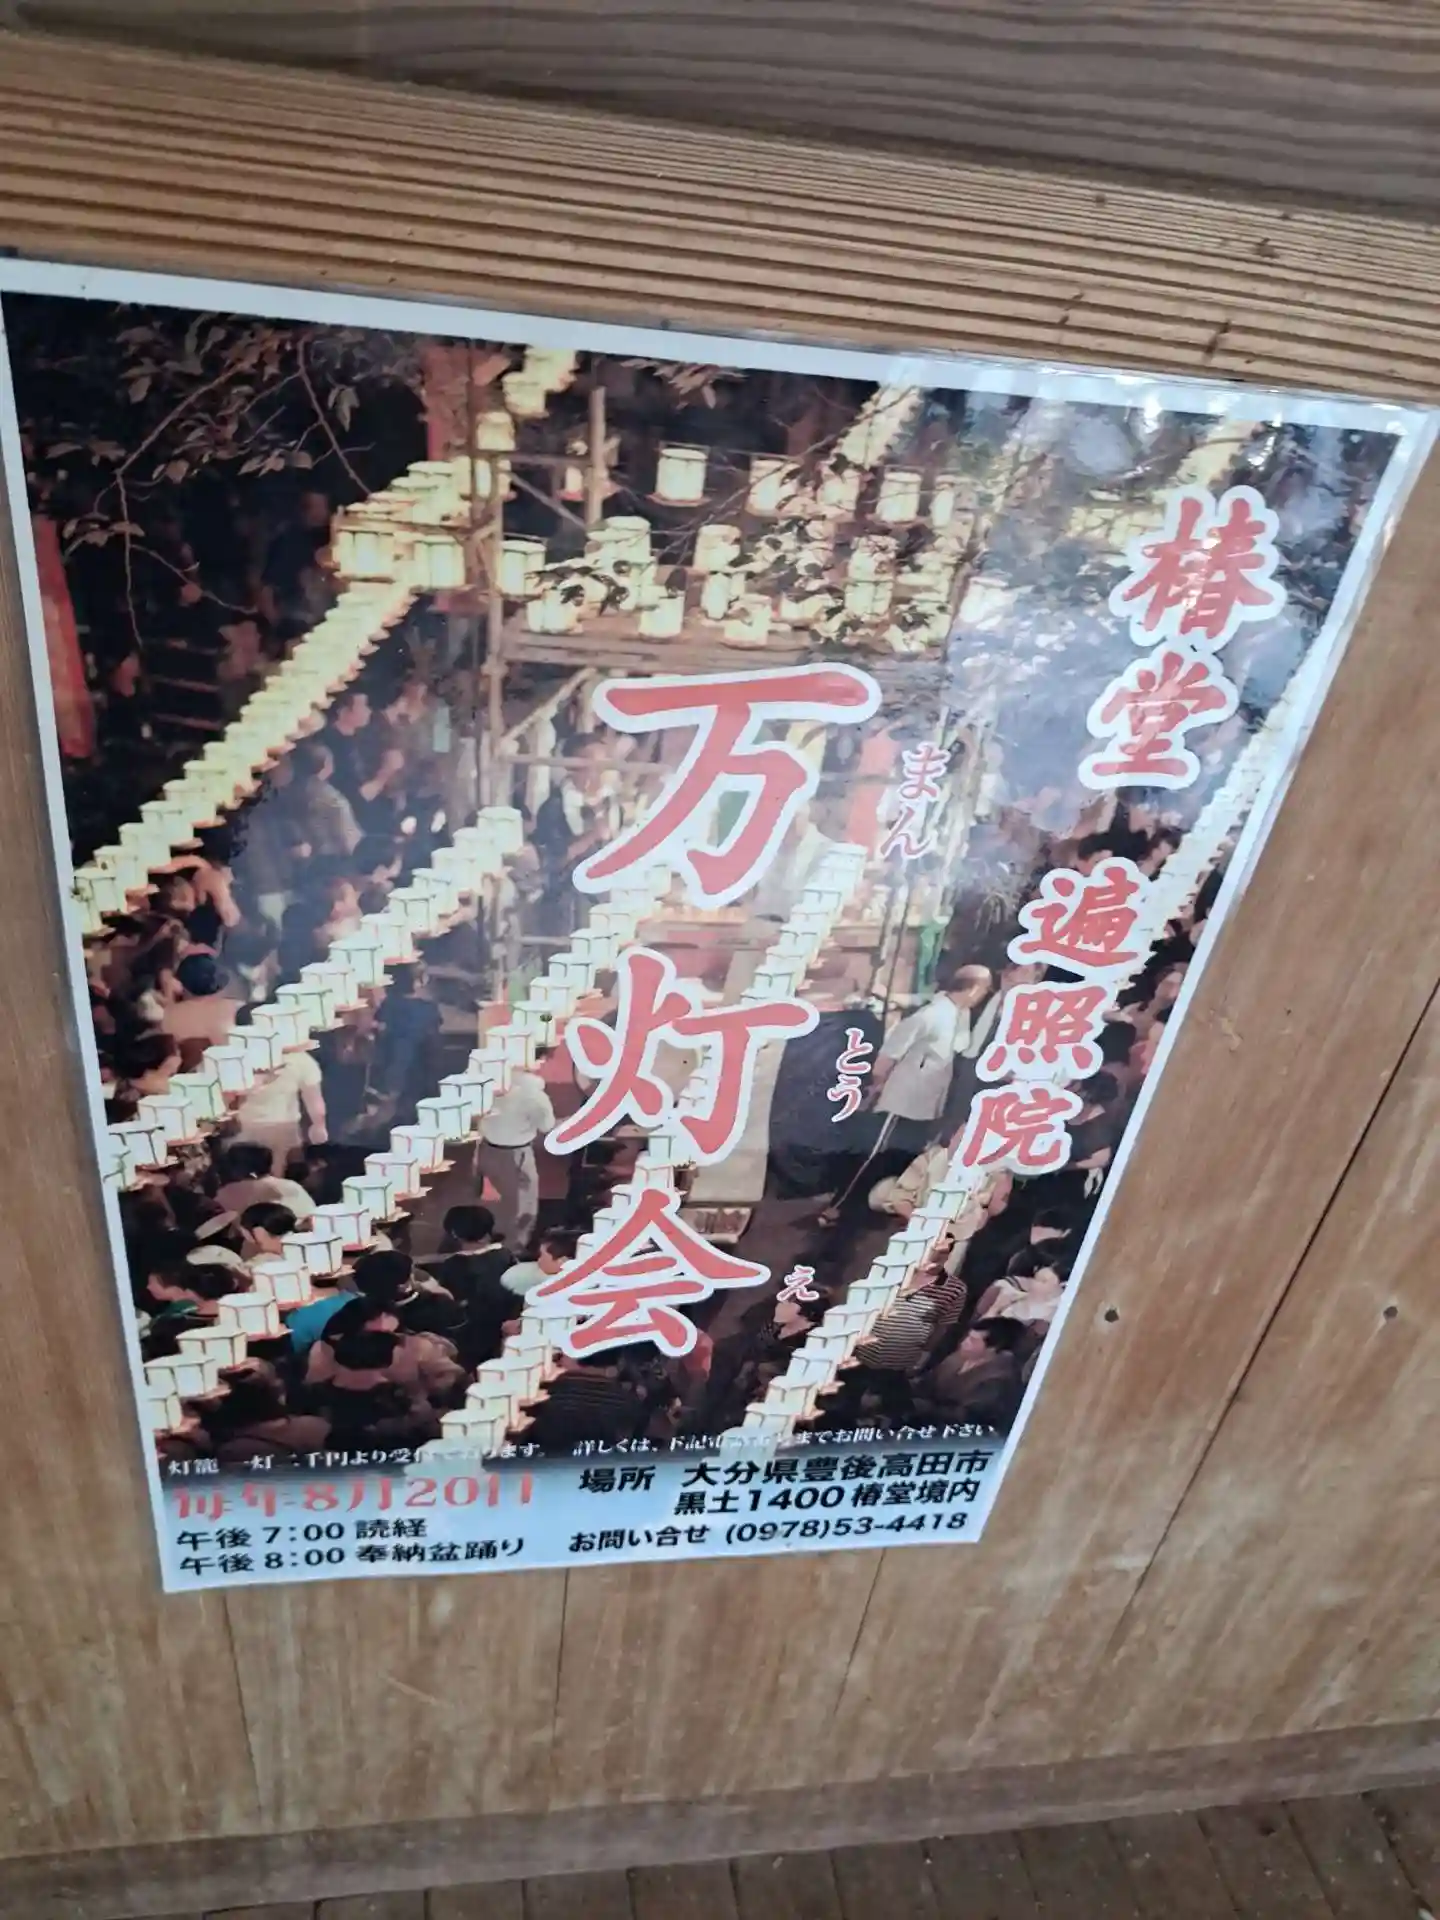 椿堂 遍照院
万灯会
まん
とう
え
灯籠 一灯 二千円より受付ております。
詳しくは、下記電話番号までお問い合せ下さい
毎年8月20日
午後7:00 読経
午後8:00 奉納盆踊り
場所 大分県豊後高田市
黒土1400 椿堂境内
お問い合せ (0978)53-4418